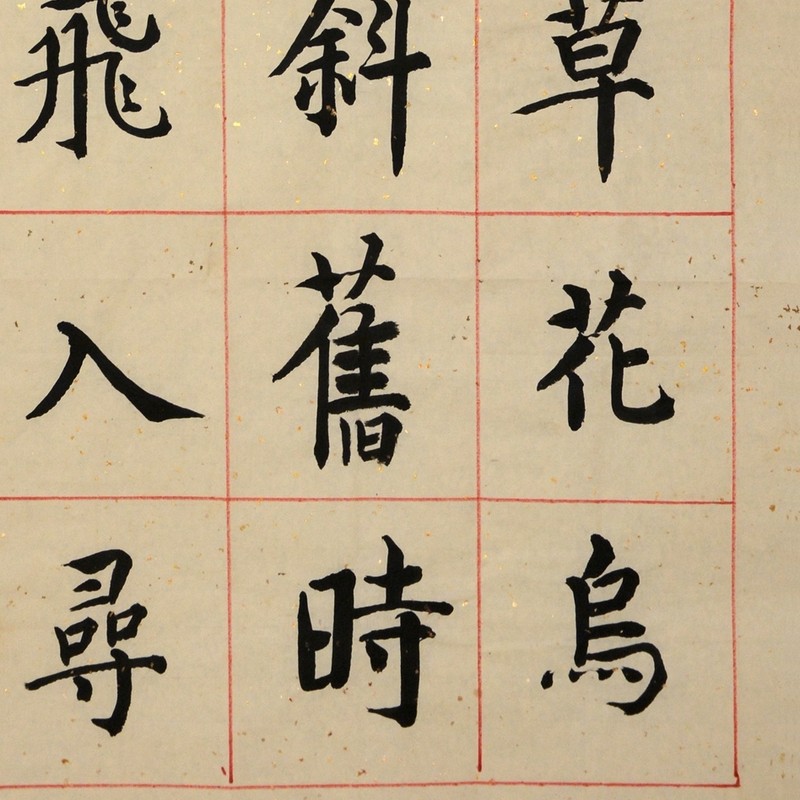 草花烏
斜舊時
飛入尋